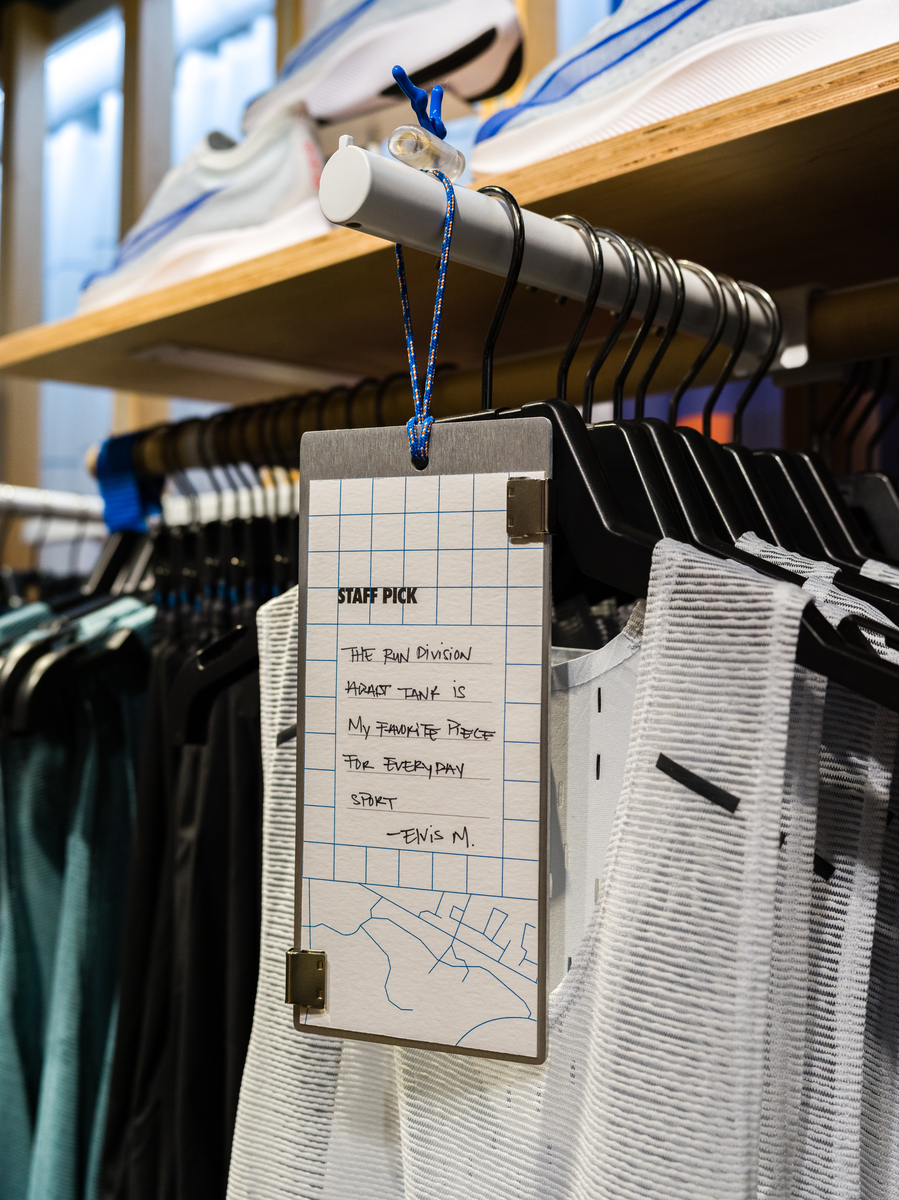 STAFF PICK
THE RUN DIVISION
ADAPT TANK IS
MY FAVORITE PIECE
FOR EVERYDAY
SPORT
-ELVIS M.